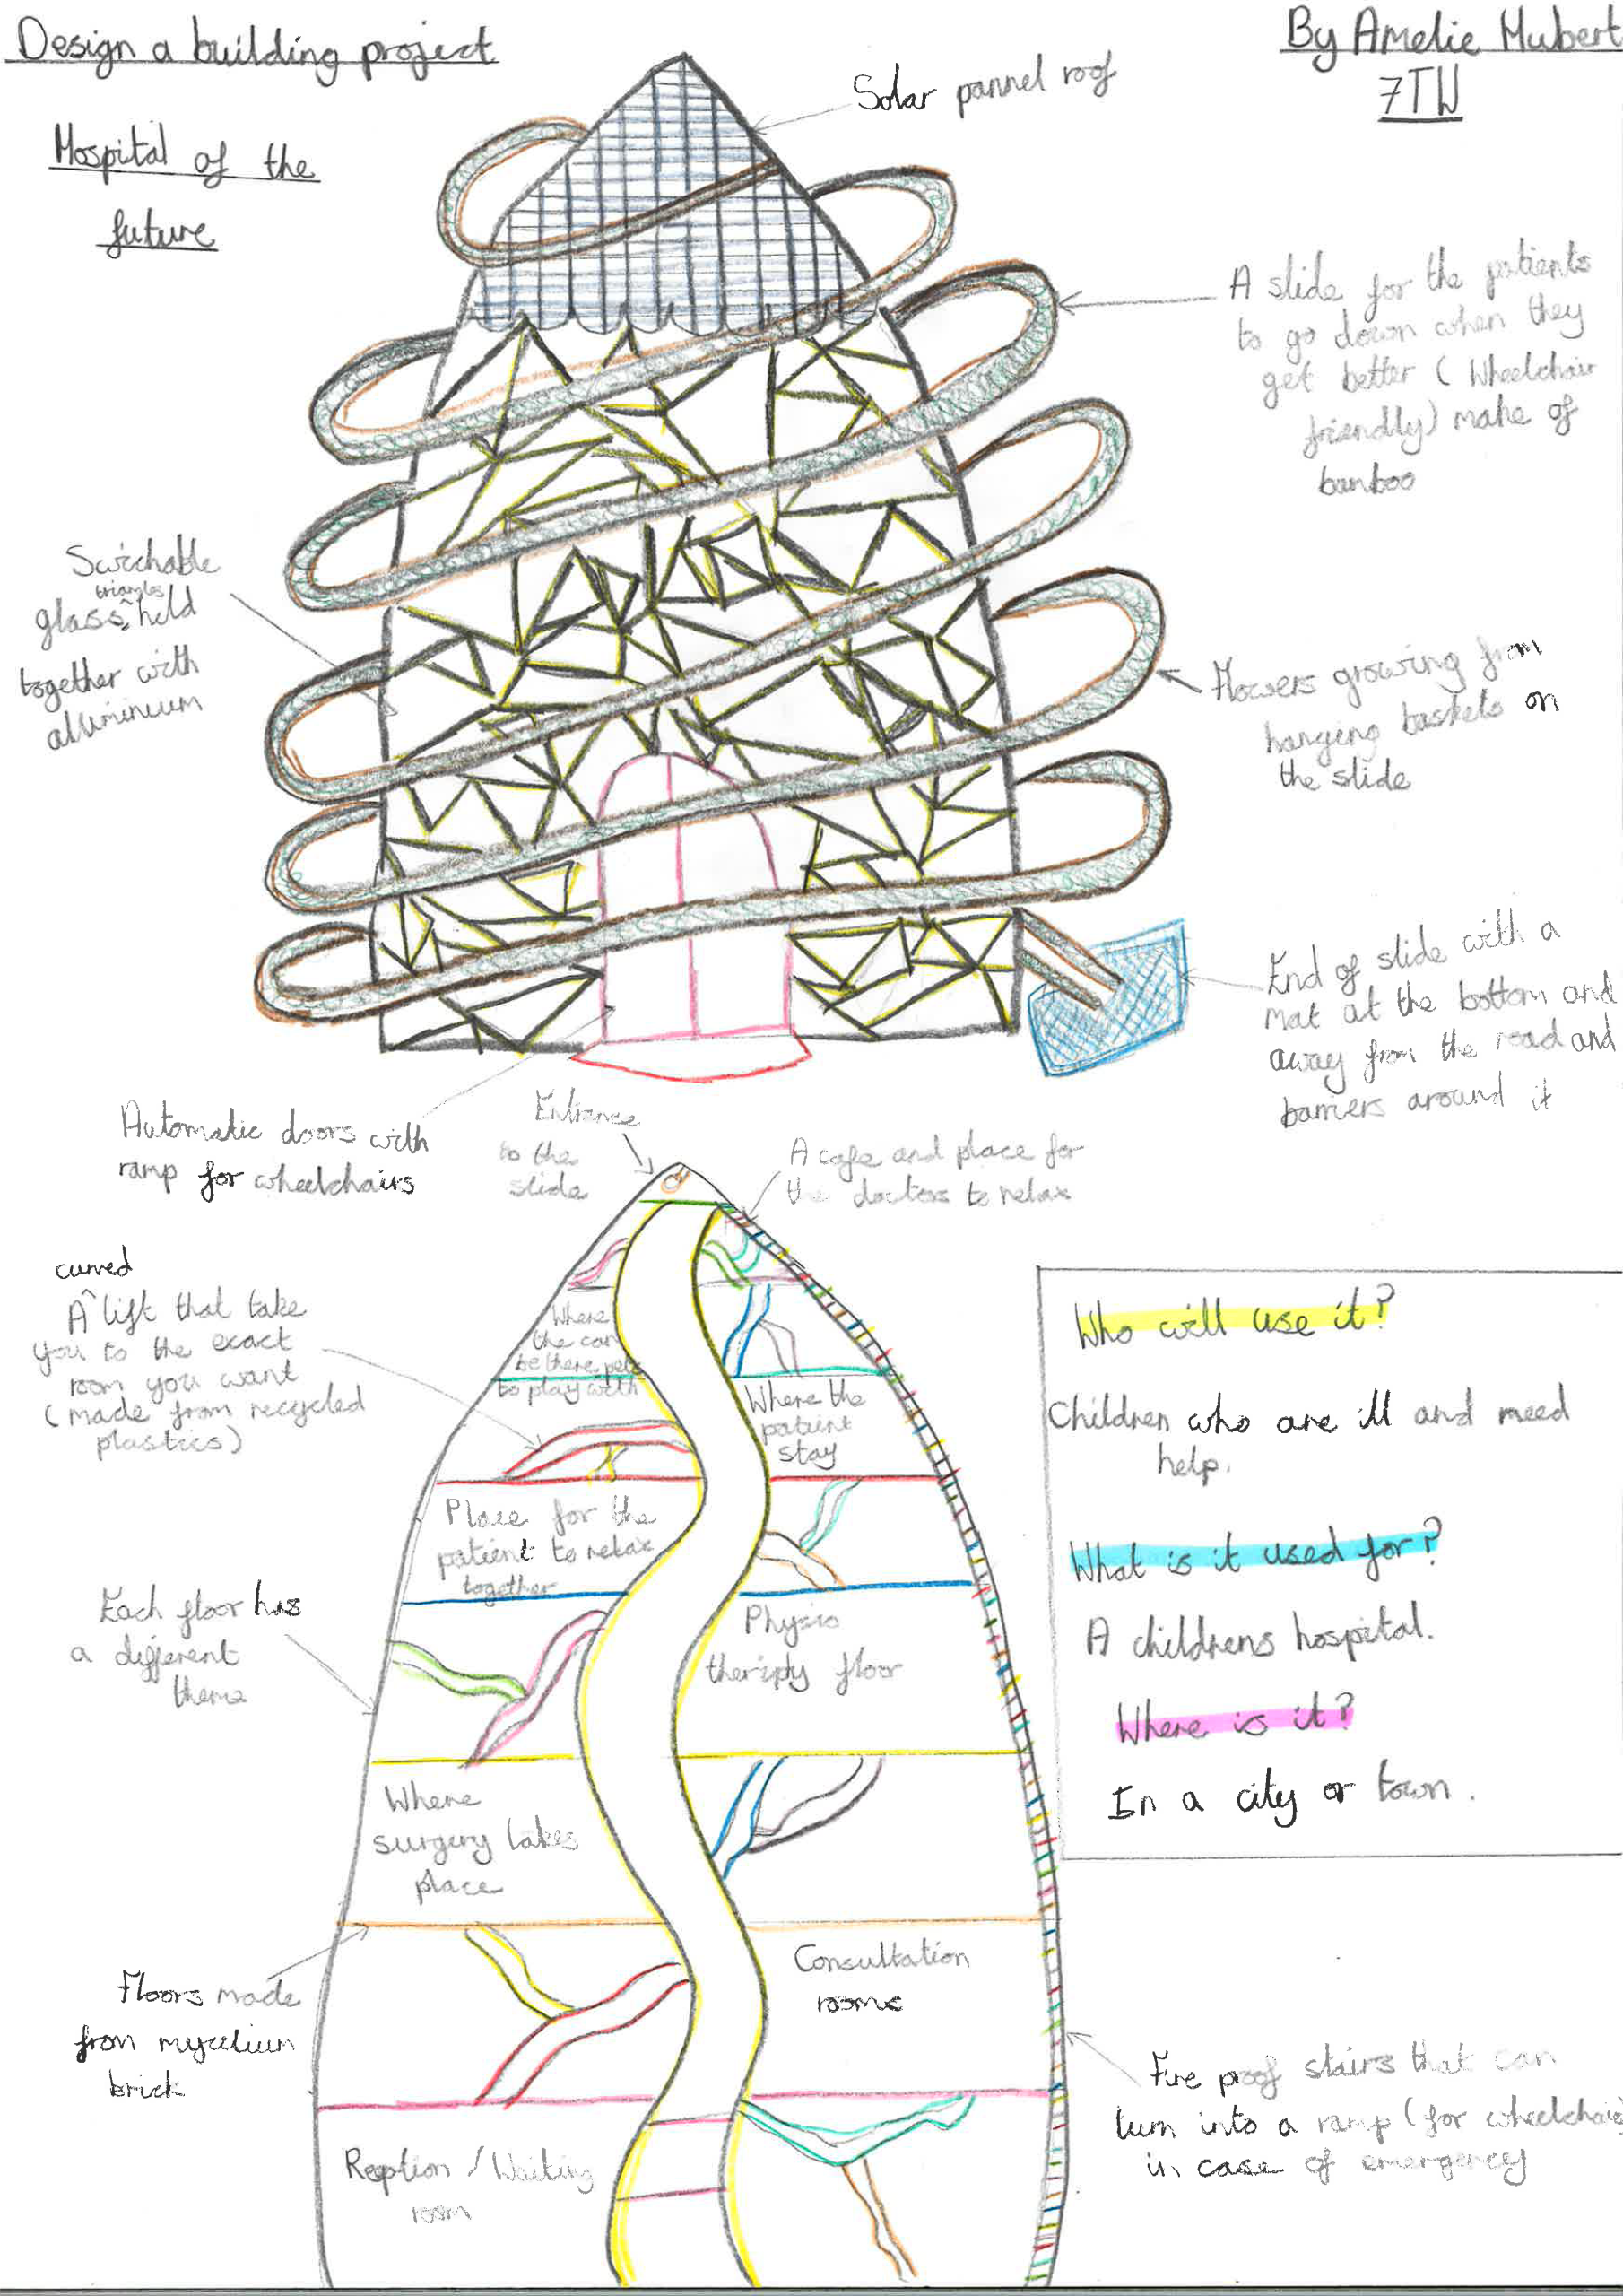 Design a building project
By Amelie Hubert
7TW
Hospital of the
future
Solar pannel roof
A slide for the patients
to go down when they
get better (Wheelchair
friendly) make of
bamboo
Swichable
triangles
glass ^ held
together with
alluminium
Flowers growing from
hanging baskets on
the slide
End of slide with a
mat at the bottom and
away from the road and
barriers around it
Automatic doors with
ramp for wheelchairs
Entrance
to the
slide
A cafe and place for
the doctors to relax
curved
A ^ lift that take
you to the exact
room you want
(made from recycled
plastics)
Where
the can
be there pets
to play with
Where the
patient
stay
Place for the
patient to relax
together
Each floor has
a different
theme
Physio
theripty floor
Where
surgery takes
place
Floors made
from mycelium
brick
Consultation
rooms
Reption / Waiting
room
Fire proof stairs that can
turn into a ramp (for wheelchairs)
in case of emergency
Who will use it?
Children who are ill and need
help.
What is it used for?
A childrens hospital.
Where is it?
In a city or town.